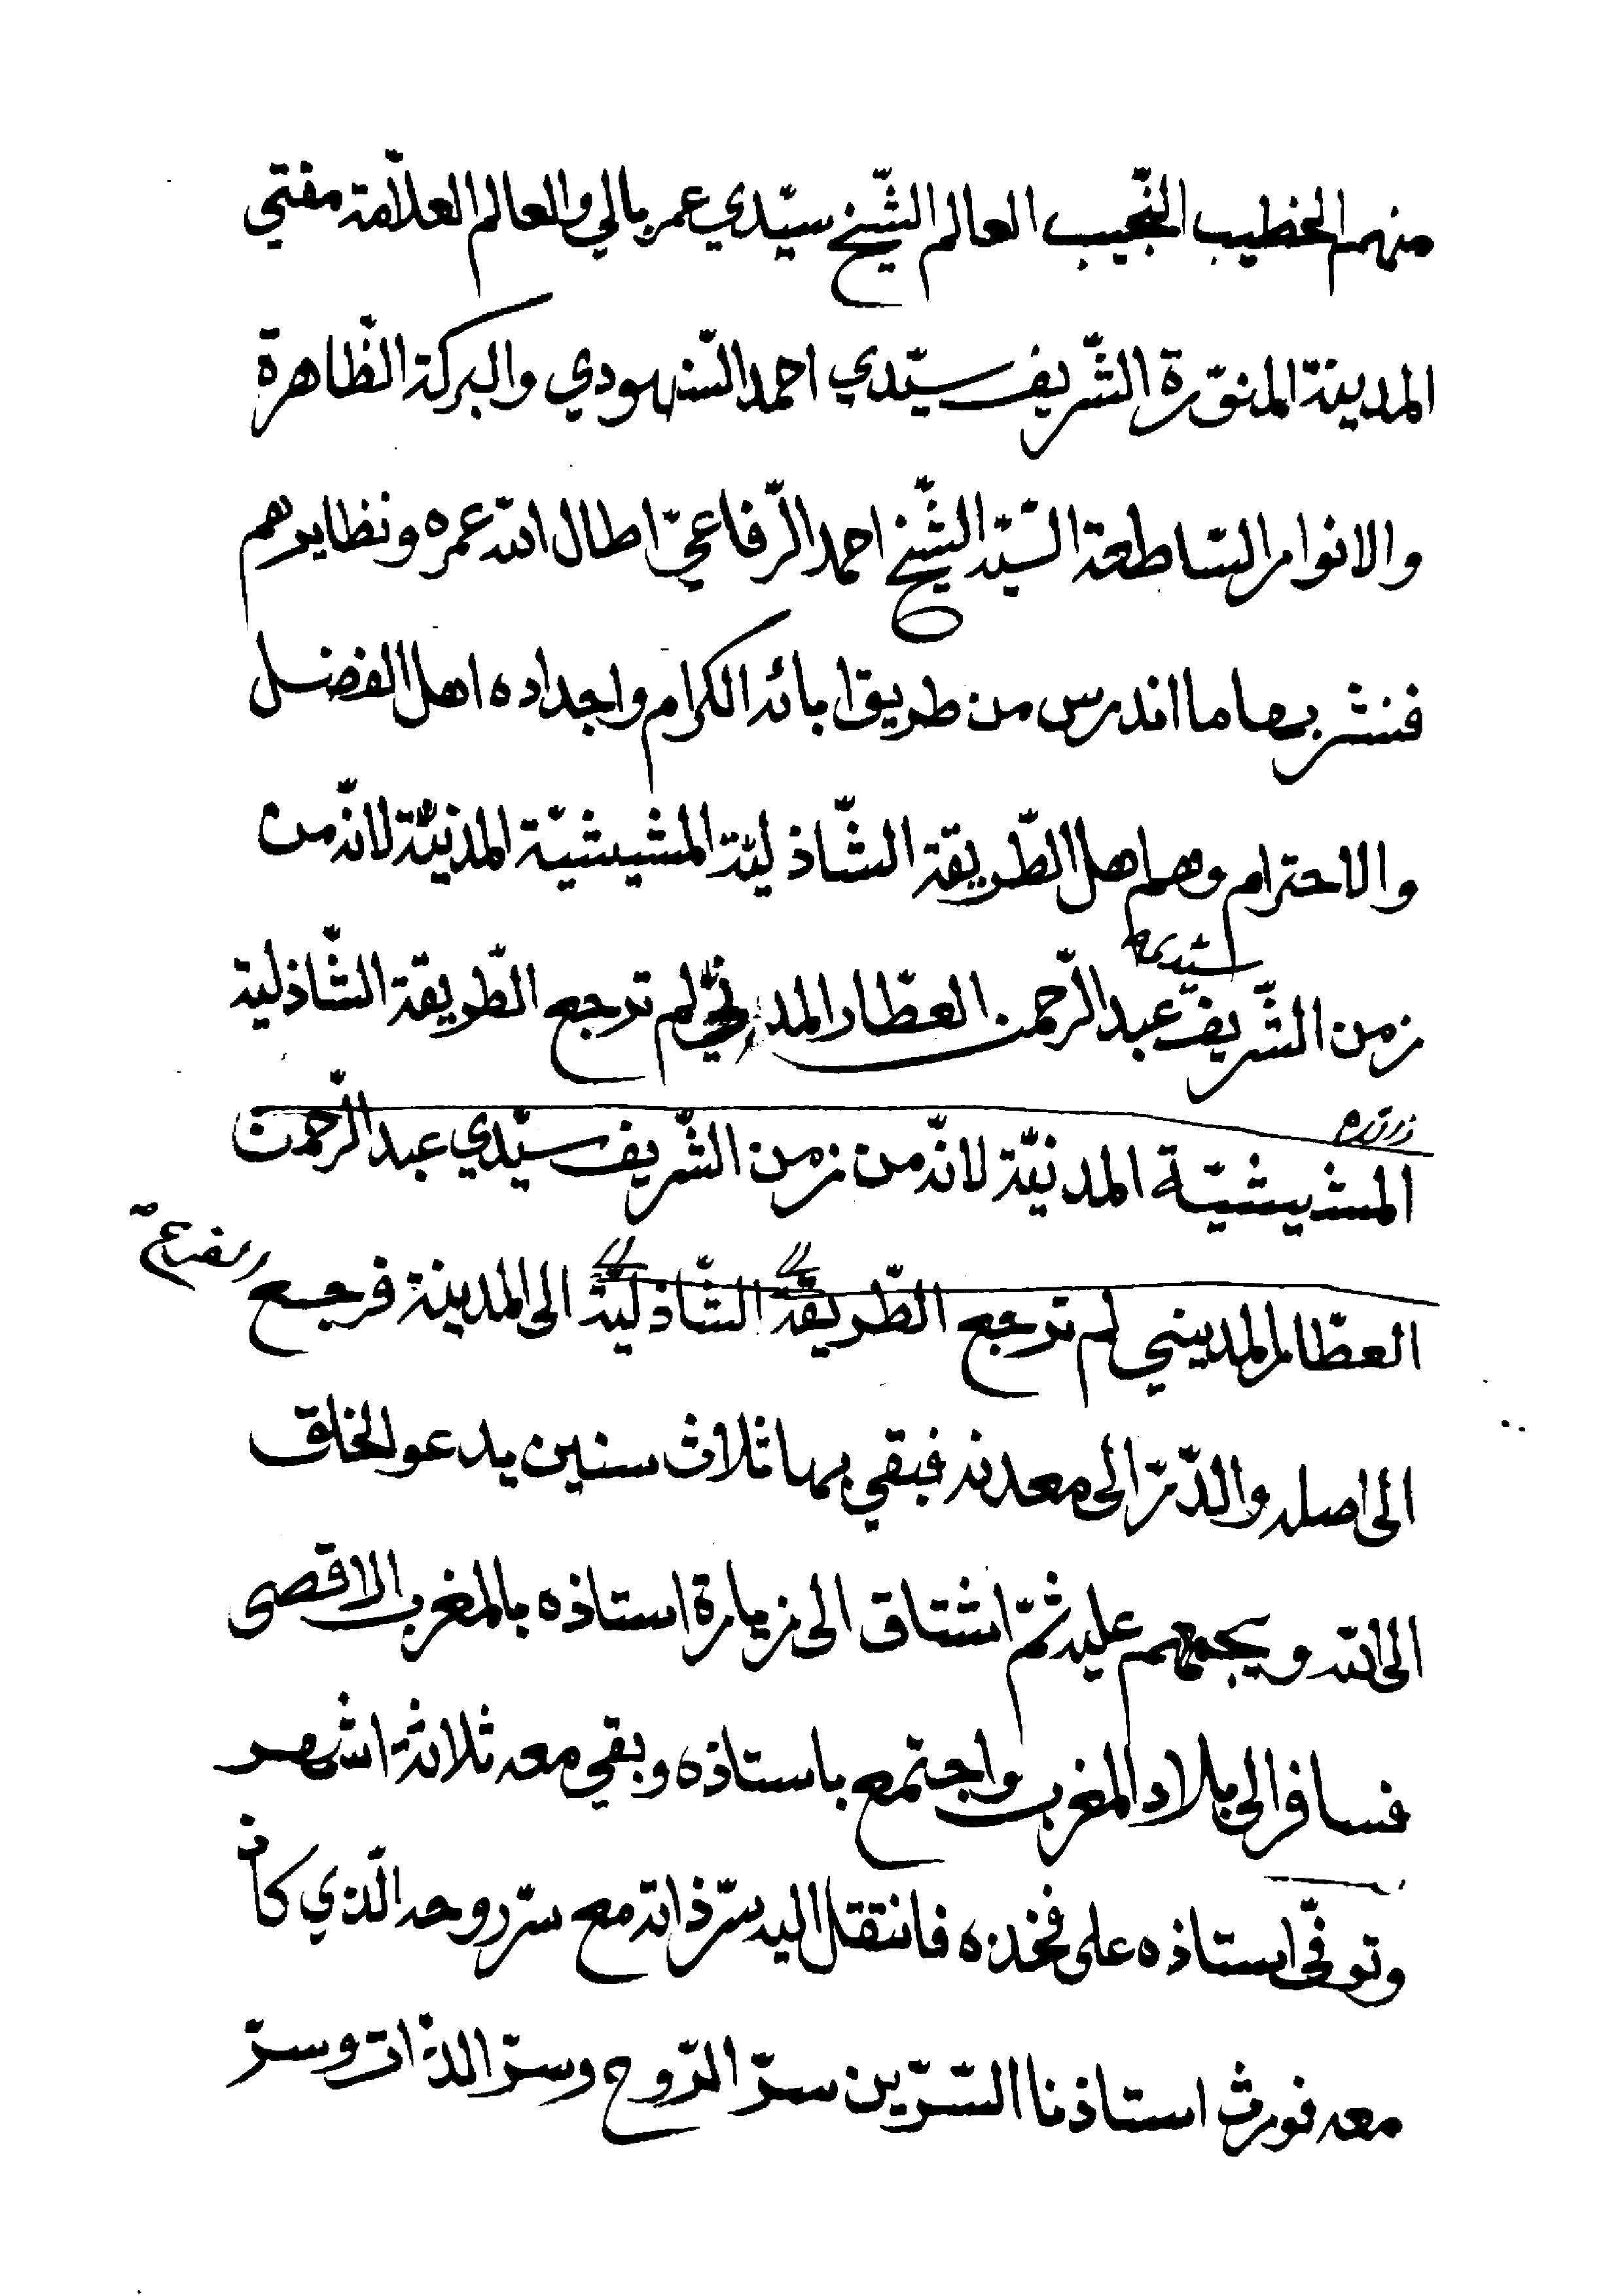 منهم الخطيب النّجيب العالم الشّيخ سيّدي عمر بالي والعالم العلاّمة مفتي
المدينة المنوّرة الشّريف سيّدي احمد السّنهودي والبركة الظّاهرة
والانوار السّاطعة السّيّد الشّيخ احمد الرّفاعيّ اطال الله عمره ونظايرهم
فنشر بها ما اندرس من طريق ابائه الكرام واجداده اهل الفضل
والاحترام وهم اهل الطّريقة الشّاذليّة المشيشيّة المدنيّة لانّه من
سيّدي
زمن الشّريف عبد الرّحمن العطّار المدنيّ لم ترجع الطّريقة الشّاذلية
المشيشيّة المدنيّة لانّه من زمن الشّريف سيّدي عبد الرّحمن
العطّار المديني لم ترجع الطّريقة الشّاذليّة الى المدينة فرجع
الى اصله والدّرّ الى معدنه فبقي بها ثلاث سنين يدعو الخلق
الى الله ويجمعهم عليه ثمّ اشتاق الى زيارة استاذه بالمغرب الاقصى
فسافر الى بلاد المغرب واجتمع باستاذه وبقي معه ثلاثة اشهر
وتوفّي استاذه على فخذه فانتقل اليه سرّ ذاته مع سرّ روحه الّذي كان
معه فورث استاذنا السّرّين سرّ الرّوح وسرّ الذّات وسرّ